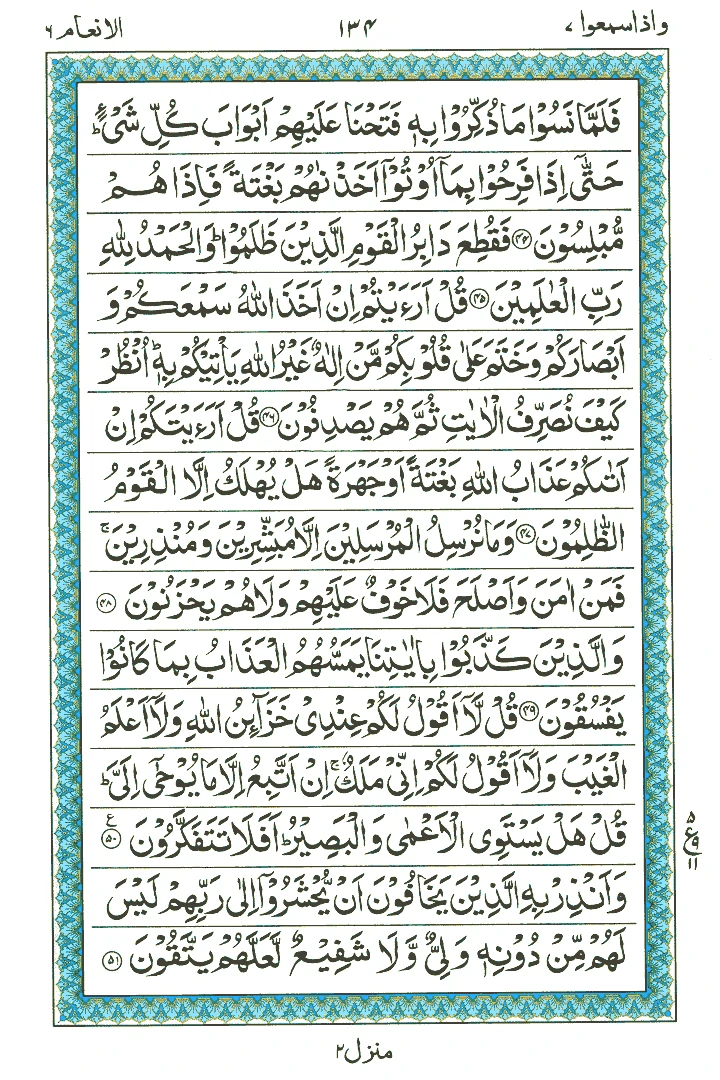 واذاسمعوا ۷ ۱۳۴ الانعام ۶
فَلَمَّا نَسُوْا مَا ذُكِّرُوْا بِهٖ فَتَحْنَا عَلَيْهِمْ اَبْوَابَ كُلِّ شَیْءٍ ؕ
حَتّٰۤی اِذَا فَرِحُوْا بِمَاۤ اُوْتُوْۤا اَخَذْنٰهُمْ بَغْتَةً فَاِذَا هُمْ
مُّبْلِسُوْنَ ۴۴ فَقُطِعَ دَابِرُ الْقَوْمِ الَّذِيْنَ ظَلَمُوْا ؕ وَالْحَمْدُ لِلّٰهِ
رَبِّ الْعٰلَمِيْنَ ۴۵ قُلْ اَرَءَيْتُمْ اِنْ اَخَذَ اللّٰهُ سَمْعَكُمْ وَ
اَبْصَارَكُمْ وَخَتَمَ عَلٰی قُلُوْبِكُمْ مَّنْ اِلٰهٌ غَيْرُ اللّٰهِ يَاْتِيْكُمْ بِهٖ ؕ اُنْظُرْ
كَيْفَ نُصَرِّفُ الْاٰيٰتِ ثُمَّ هُمْ يَصْدِفُوْنَ ۴۶ قُلْ اَرَءَيْتَكُمْ اِنْ
اَتٰىكُمْ عَذَابُ اللّٰهِ بَغْتَةً اَوْ جَهْرَةً هَلْ يُهْلَكُ اِلَّا الْقَوْمُ
الظّٰلِمُوْنَ ۴۷ وَمَا نُرْسِلُ الْمُرْسَلِيْنَ اِلَّا مُبَشِّرِيْنَ وَمُنْذِرِيْنَ ۚ
فَمَنْ اٰمَنَ وَاَصْلَحَ فَلَا خَوْفٌ عَلَيْهِمْ وَلَا هُمْ يَحْزَنُوْنَ ۴۸
وَالَّذِيْنَ كَذَّبُوْا بِاٰيٰتِنَا يَمَسُّهُمُ الْعَذَابُ بِمَا كَانُوْا
يَفْسُقُوْنَ ۴۹ قُلْ لَّاۤ اَقُوْلُ لَكُمْ عِنْدِیْ خَزَآئِنُ اللّٰهِ وَلَاۤ اَعْلَمُ
الْغَيْبَ وَلَاۤ اَقُوْلُ لَكُمْ اِنِّیْ مَلَكٌ ۚ اِنْ اَتَّبِعُ اِلَّا مَا يُوْحٰۤی اِلَیَّ ؕ
قُلْ هَلْ يَسْتَوِی الْاَعْمٰی وَالْبَصِيْرُ ؕ اَفَلَا تَتَفَكَّرُوْنَ ۵۰ ع
۵ ع ۹ ۱۱
وَاَنْذِرْ بِهِ الَّذِيْنَ يَخَافُوْنَ اَنْ يُّحْشَرُوْۤا اِلٰی رَبِّهِمْ لَيْسَ
لَهُمْ مِّنْ دُوْنِهٖ وَلِیٌّ وَّلَا شَفِيْعٌ لَّعَلَّهُمْ يَتَّقُوْنَ ۵۱
منزل ۲